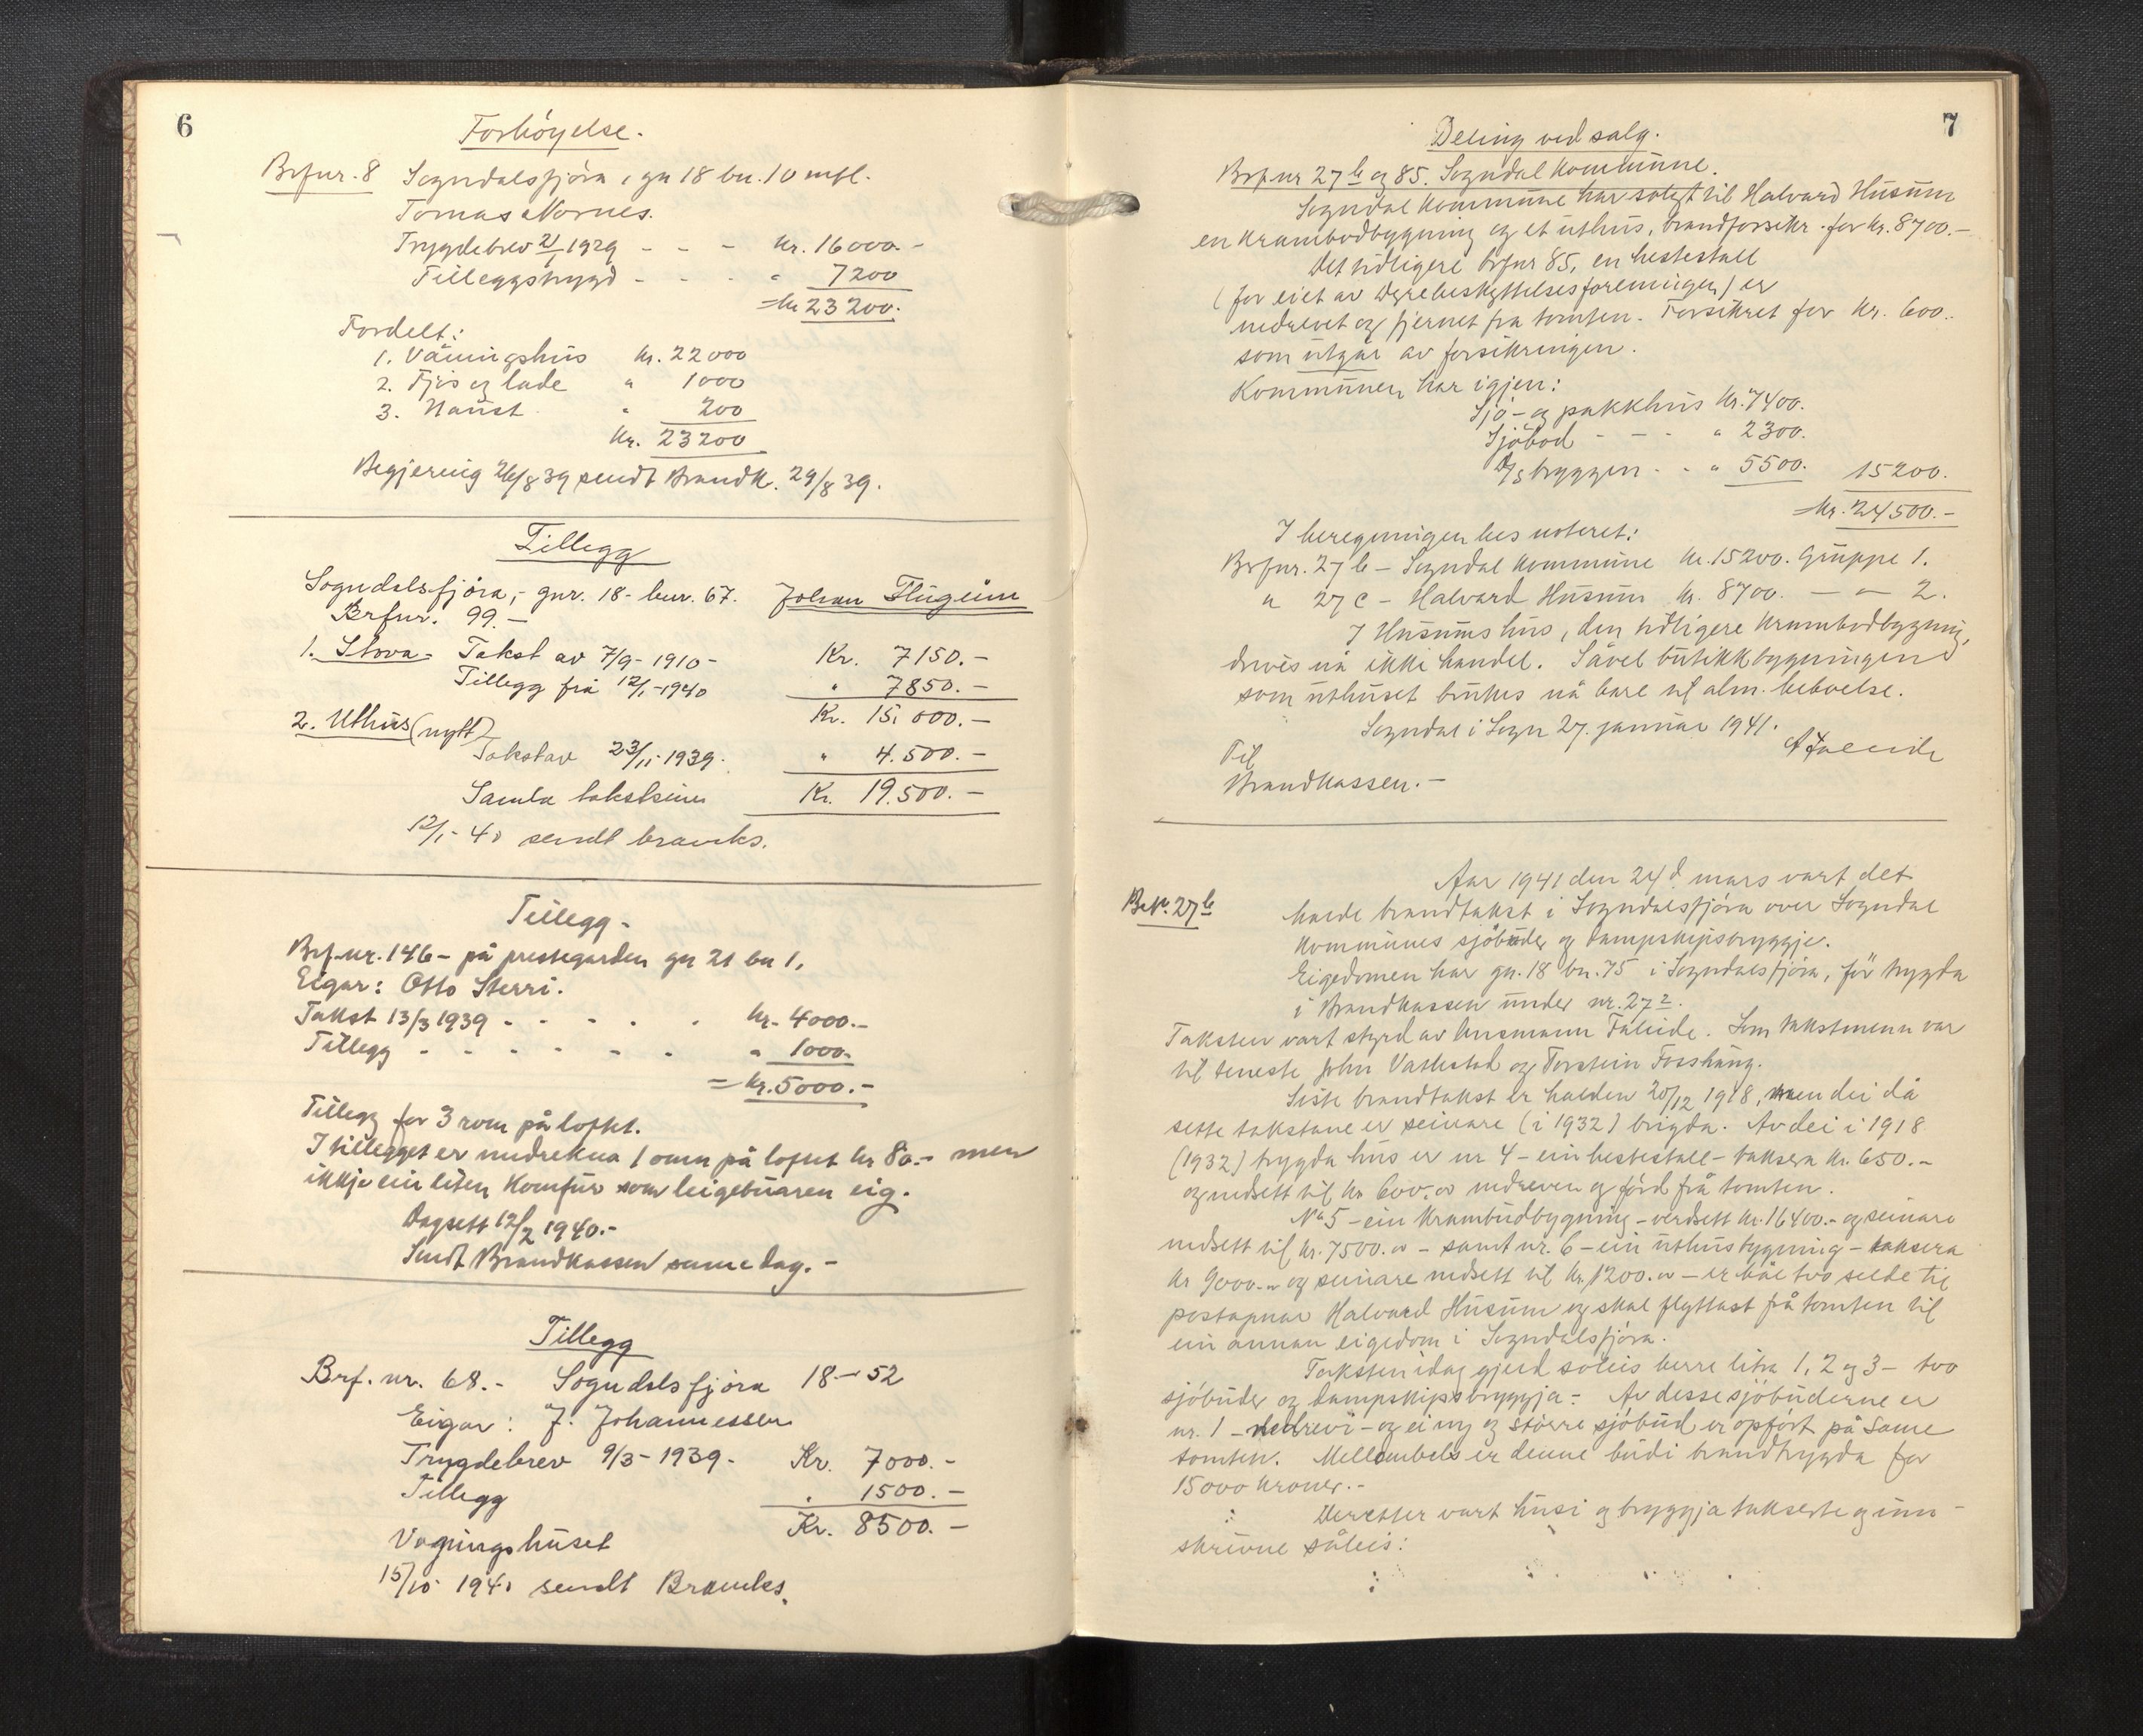 6
Forhöyelse.
Brfnr. 8 Sogndalsfjöra, gn 18 bn. 10 mfl.
Tomas Nornes.
Trygdebrev 2/1 1929 - - - Kr. 16000.-
Tilleggstrygd - - - " 7200
= Kr 23200.
Fordelt:
1. Våningshus Kr. 22000
2. Fjös og lade " 1000
3. Naust " 200
Kr. 23200
Begjering 26/8 39 sendt Brandk. 29/8 39.
Tillegg
Sogndalsfjöra, - gnr. 18 - bnr. 67. Johan Flugeim
Brfnr. 99. -
1. Stova - Takst av 7/9 - 1910 - Kr. 7150. -
Tillegg frå 12/1 - 1940 " 7850. -
Kr. 15.000. -
2. Uthus (nytt)
Takst av 23/11 - 1939. " 4.500. -
Samla takstsum Kr. 19.500. -
12/1 - 40 sendt brandks.
Tillegg -
Brf.nr. 146 - på prestegarden gn 21 bn 1.
Eigar: Otto Sterri.
Takst 13/3 1939 - - - - - Kr. 4000.-
Tillegg - - - - - - " 1000.
= Kr. 5000. -
Tillegg for 3 rom på loftet.
I tillegget er medrekna 1 omn på loftet kr 80.- men
ikkje ein liten komfur som leigebuaren eig.
Dagsett 12/2 1940. -
Sendt Brandkassen same dag. -
Tillegg
Brf. nr. 68. - Sogndalsfjöra 18 - 52
Eigar: J. Johannessen
Trygdebrev 9/3 - 1939 - Kr. 7000. -
Tillegg " 1500. -
Kr. 8500. -
Vaaningshuset
15/10 1940 sendt Brandks.
7
Deling ved salg.
Brfnr 27 b og 85. Sogndal Kommune.
Sogndal Kommune har solgt til Halvard Husum
en Krambodbygning og et uthus, brandforsikr. for kr. 8700. -
Det tidligere brfnr 85, en hestestall
(för eiet av Dyrebeskyttelsesforeningen) er
nedrevet og fjernet fra tomten. Forsikret for Kr. 600..
som utgår av forsikringen.
Kommunen har igjen:
Sjö- og pakkhus Kr. 7400.
Sjöbod - - - " 2300.
D/S bryggen - - " 5500. 15200.
= Kr. 24500. -
I beregningen bes noteret:
Brfnr. 27 b - Sogndal Kommune Kr. 15200. Gruppe 1.
" 27 c - Halvard Husum Kr. 8700. - " - 2.
I Husums hus, den tidligere Krambodbygning,
drives nå ikke handel. Såvel butikkbygningen
som uthuset brukes nå bare til alm. beboelse.
Sogndal i Sogn 27. januar 1941.
Til A Faleide
Brandkassen. -
Br.Nr. 27 b
Aar 1941 den 24d. mars vart det
halde brandtakst i Sogndalsfjöra over Sogndal
Kommunes sjöbuder og dampskipsbryggje.
Eigedomen har gn. 18 bn. 75 i Sogndalsfjöra, för trygda
i Brandkassen under nr. 27 2.
Taksten vart styrd av lensmann Faleide. Som takstmenn var
til teneste John Vattestad og Torstein Fosshaug.
Siste brandtakst er halden 20/12 1918, men dei då
sette takstane er seinare (i 1932) brigda. Av dei i 1918
(1932) trygda hus er nr 4 - ein hestestall - taksera Kr. 650. -
og nedsett til kr 600.oo nedreven og förd frå tomten.
No 5 - ein Krambudbygning - verdsett kr. 16400.- og seinare
nedsett til kr. 7500.oo - samt nr. 6 - ein uthusbygning - taksera
kr 9000.oo og seinare nedsett til kr 1200.oo - er båe two selde til
postopnar Halvard Husum og skal flyttast frå tomten til
ein annan eigedom i Sogndalsfjöra.
Taksten idag gjeld soleis berre litra 1, 2 og 3 - two
sjöbuder og dampskipsbryggja - Av desse sjöbuderne er
nr. 1 - nedrevi - og ei ny og större sjöbud er opfört på same
tomten. Mellombels er denne budi brandtrygda for
15000 kroner. -
Deretter vart husi og bryggja takserte og inn-
skrivne såleis: